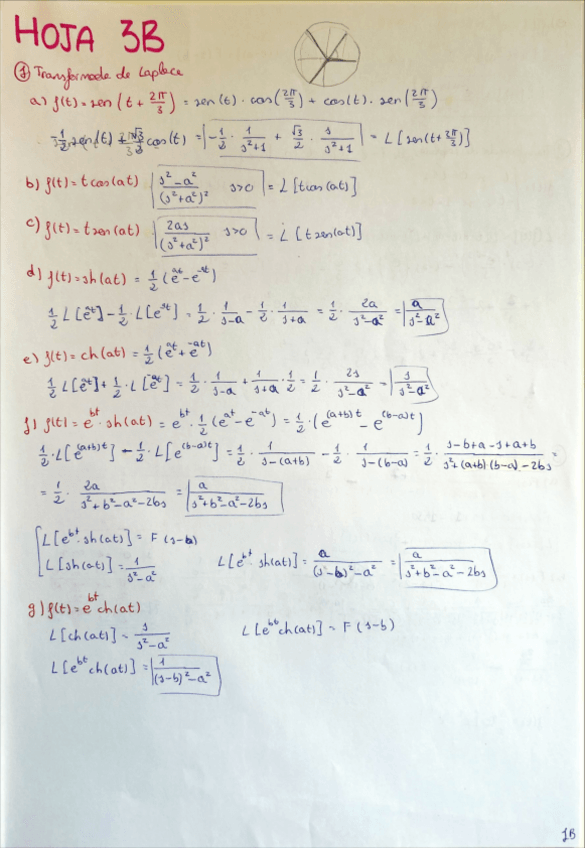 HOJA 3B
① Transformada de Laplace
a) f(t) = sen(t + 2π/3) = sen(t) · cos(2π/3) + cos(t) · sen(2π/3)
= -1/2 sen(t) + √3/2 cos(t) = -1/2 · 1/(s²+1) + √3/2 · s/(s²+1) = L[sen(t+2π/3)]
b) f(t) = t cos(at) (s²-a²)/(s²+a²)² s>0 = L[t cos(at)]
c) f(t) = t sen(at) 2as/(s²+a²)² s>0 = L[t sen(at)]
d) f(t) = sh(at) = 1/2 (e^at - e^-at)
1/2 L[e^at] - 1/2 · L[e^-at] = 1/2 · 1/(s-a) - 1/2 · 1/(s+a) = 1/2 · 2a/(s²-a²) = a/(s²-a²)
e) f(t) = ch(at) = 1/2 (e^at + e^-at)
1/2 L[e^at] + 1/2 · L[e^-at] = 1/2 · 1/(s-a) + 1/(s+a) · 1/2 = 1/2 · 2s/(s²-a²) = s/(s²-a²)
f) f(t) = e^bt · sh(at) = e^bt · 1/2 (e^at - e^-at) = 1/2 · (e^(a+b)t - e^(b-a)t)
1/2 · L[e^(a+b)t] - 1/2 · L[e^(b-a)t] = 1/2 · 1/(s-(a+b)) - 1/2 · 1/(s-(b-a)) = 1/2 · (s-b+a-s+a+b)/(s²+(a+b)·(b-a)-2bs) =
= 1/2 · 2a/(s²+b²-a²-2bs) = a/(s²+b²-a²-2bs)
L[e^bt · sh(at)] = F(s-b)
L[sh(at)] = 1/(s²-a²) L[e^bt · sh(at)] = a/((s-b)²-a²) = a/(s²+b²-a²-2bs)
g) f(t) = e^bt ch(at)
L[ch(at)] = s/(s²-a²) L[e^bt ch(at)] = F(s-b)
L[e^bt ch(at)] = 1/((s-b)²-a²)
1B